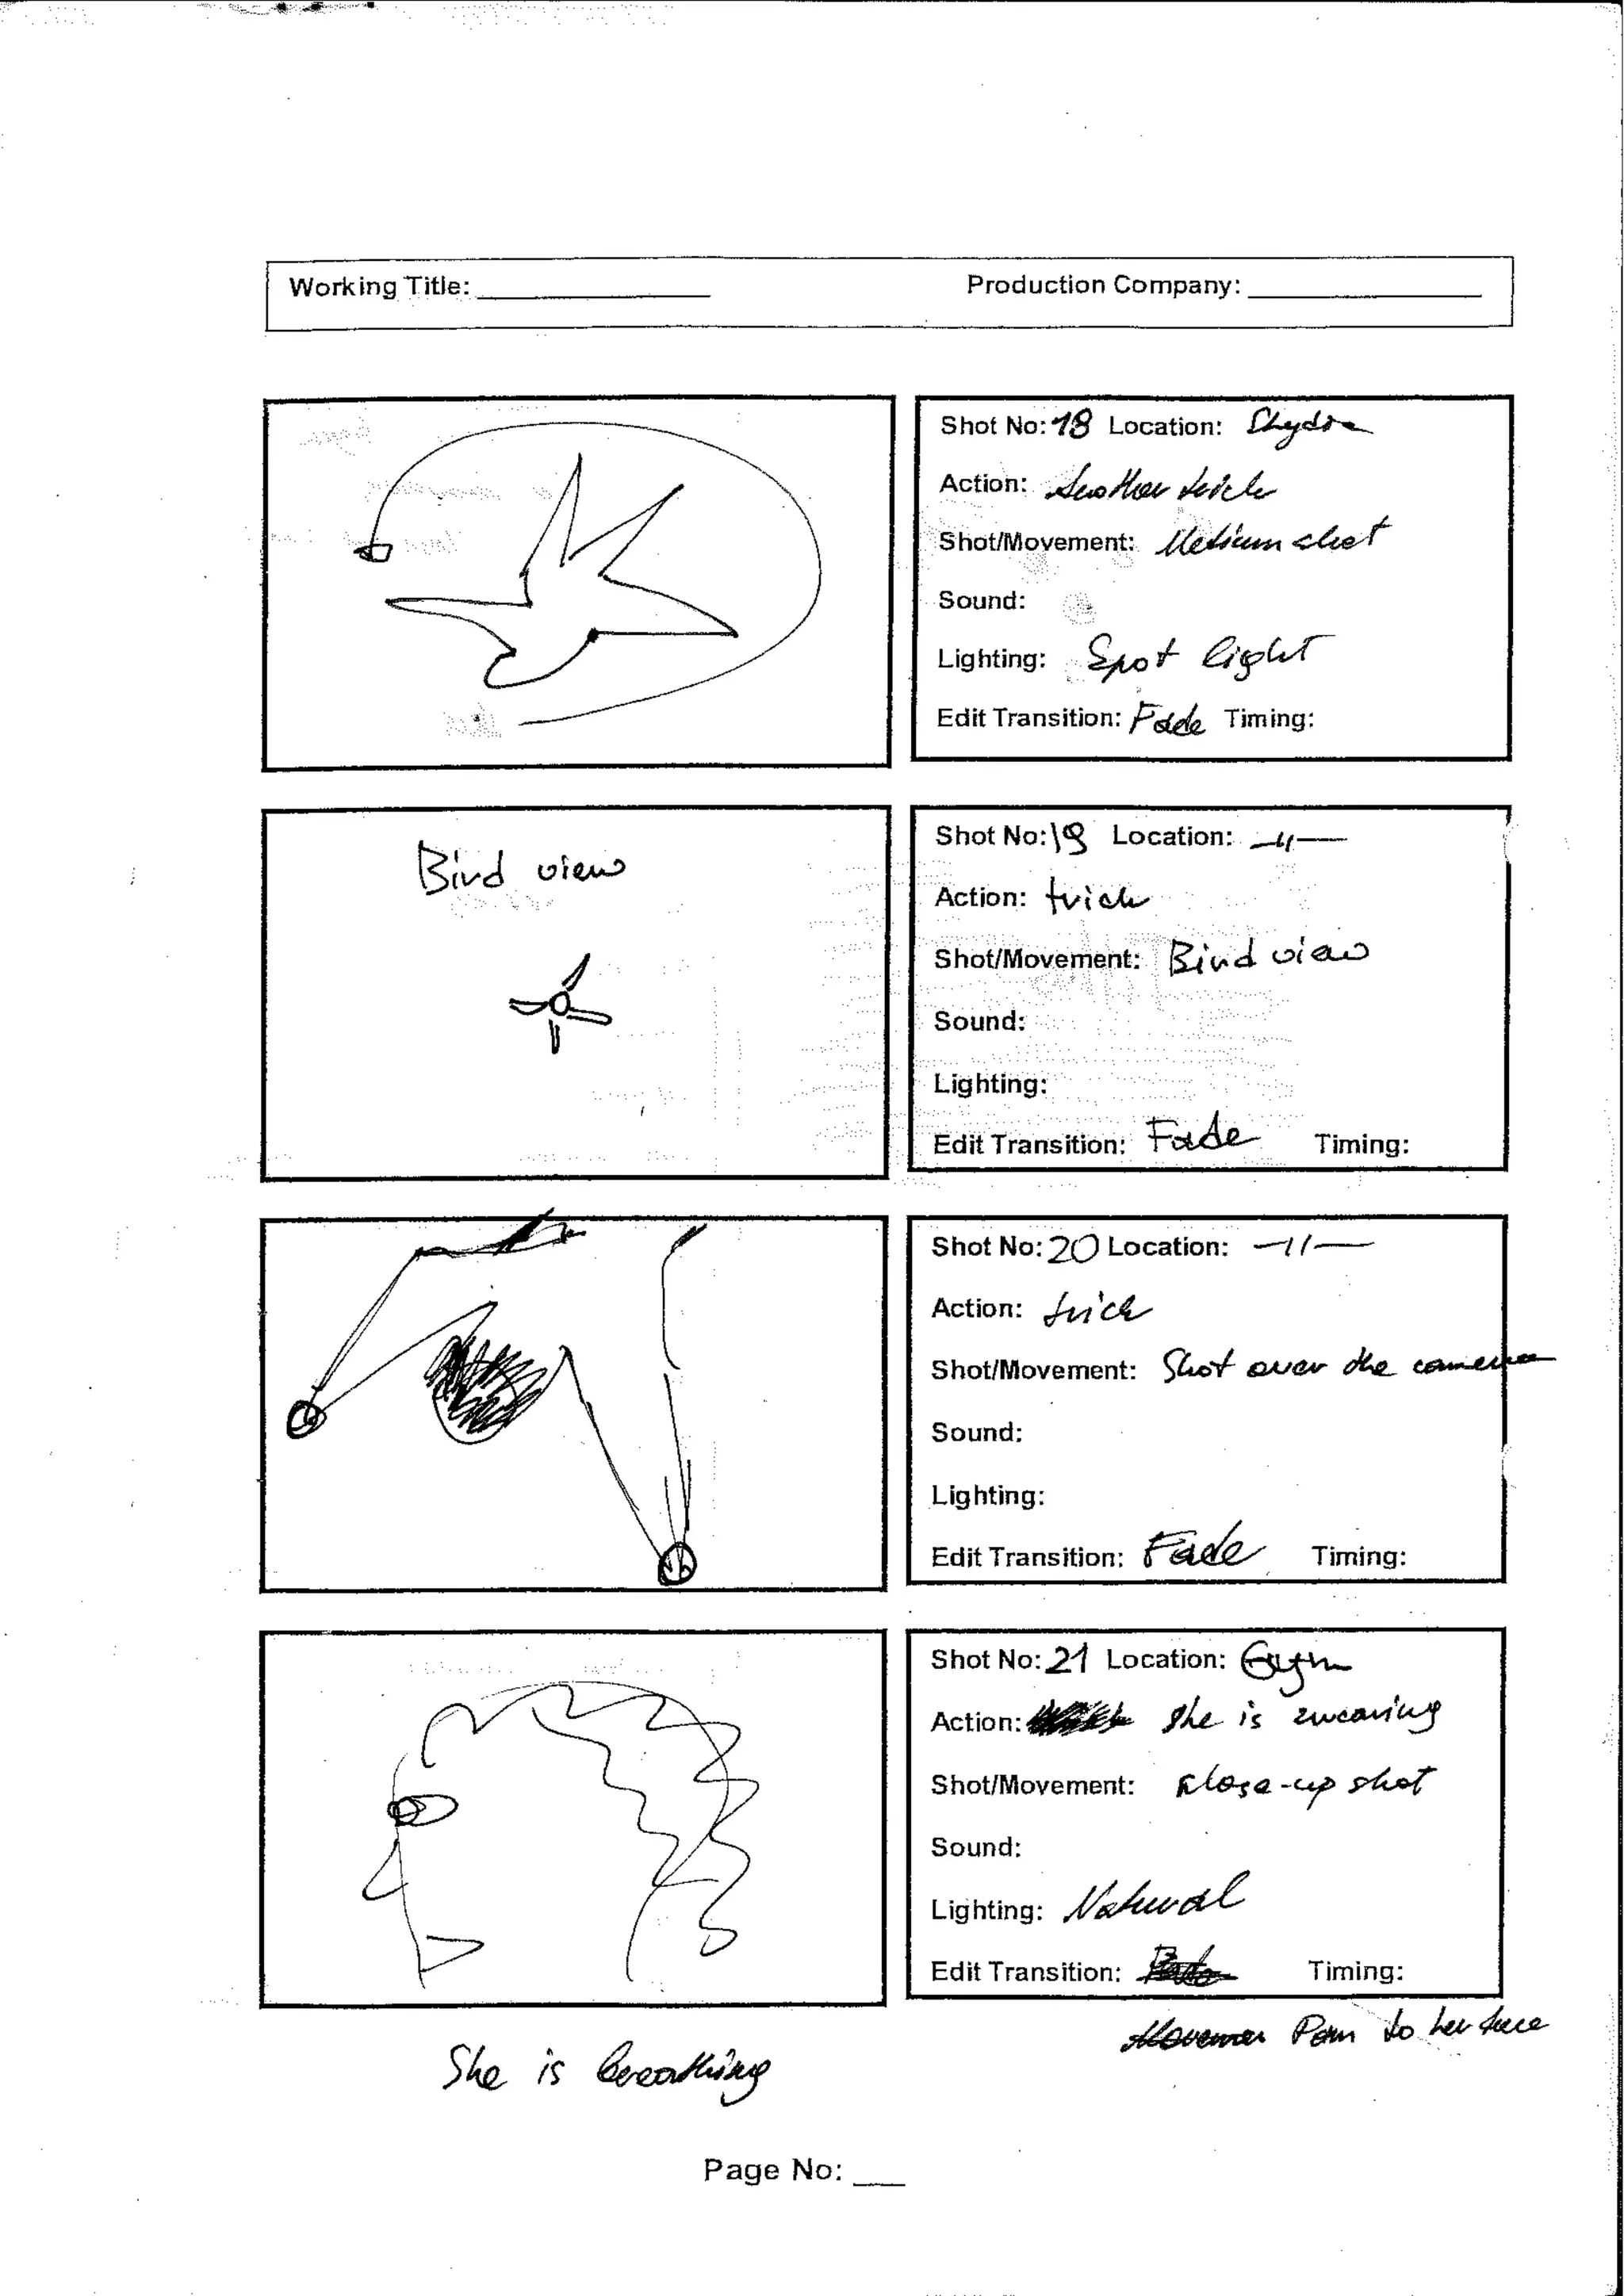 Working Title: ____________ Production Company: ____________
Shot No: 18 Location:
Action: Another trick
Shot/Movement: Medium shot
Sound:
Lighting: Spot light
Edit Transition: Fade Timing:
Bird view
Shot No: 19 Location: —11—
Action: trick
Shot/Movement: Bird view
Sound:
Lighting:
Edit Transition: Fade Timing:
Shot No: 20 Location: —11—
Action: trick
Shot/Movement: Shot over the camera
Sound:
Lighting:
Edit Transition: Fade Timing:
Shot No: 21 Location: Gym
Action: She is
Shot/Movement: Close-up shot
Sound:
Lighting: Natural
Edit Transition: Timing:
Pan to her face
She is breathing
Page No: ___